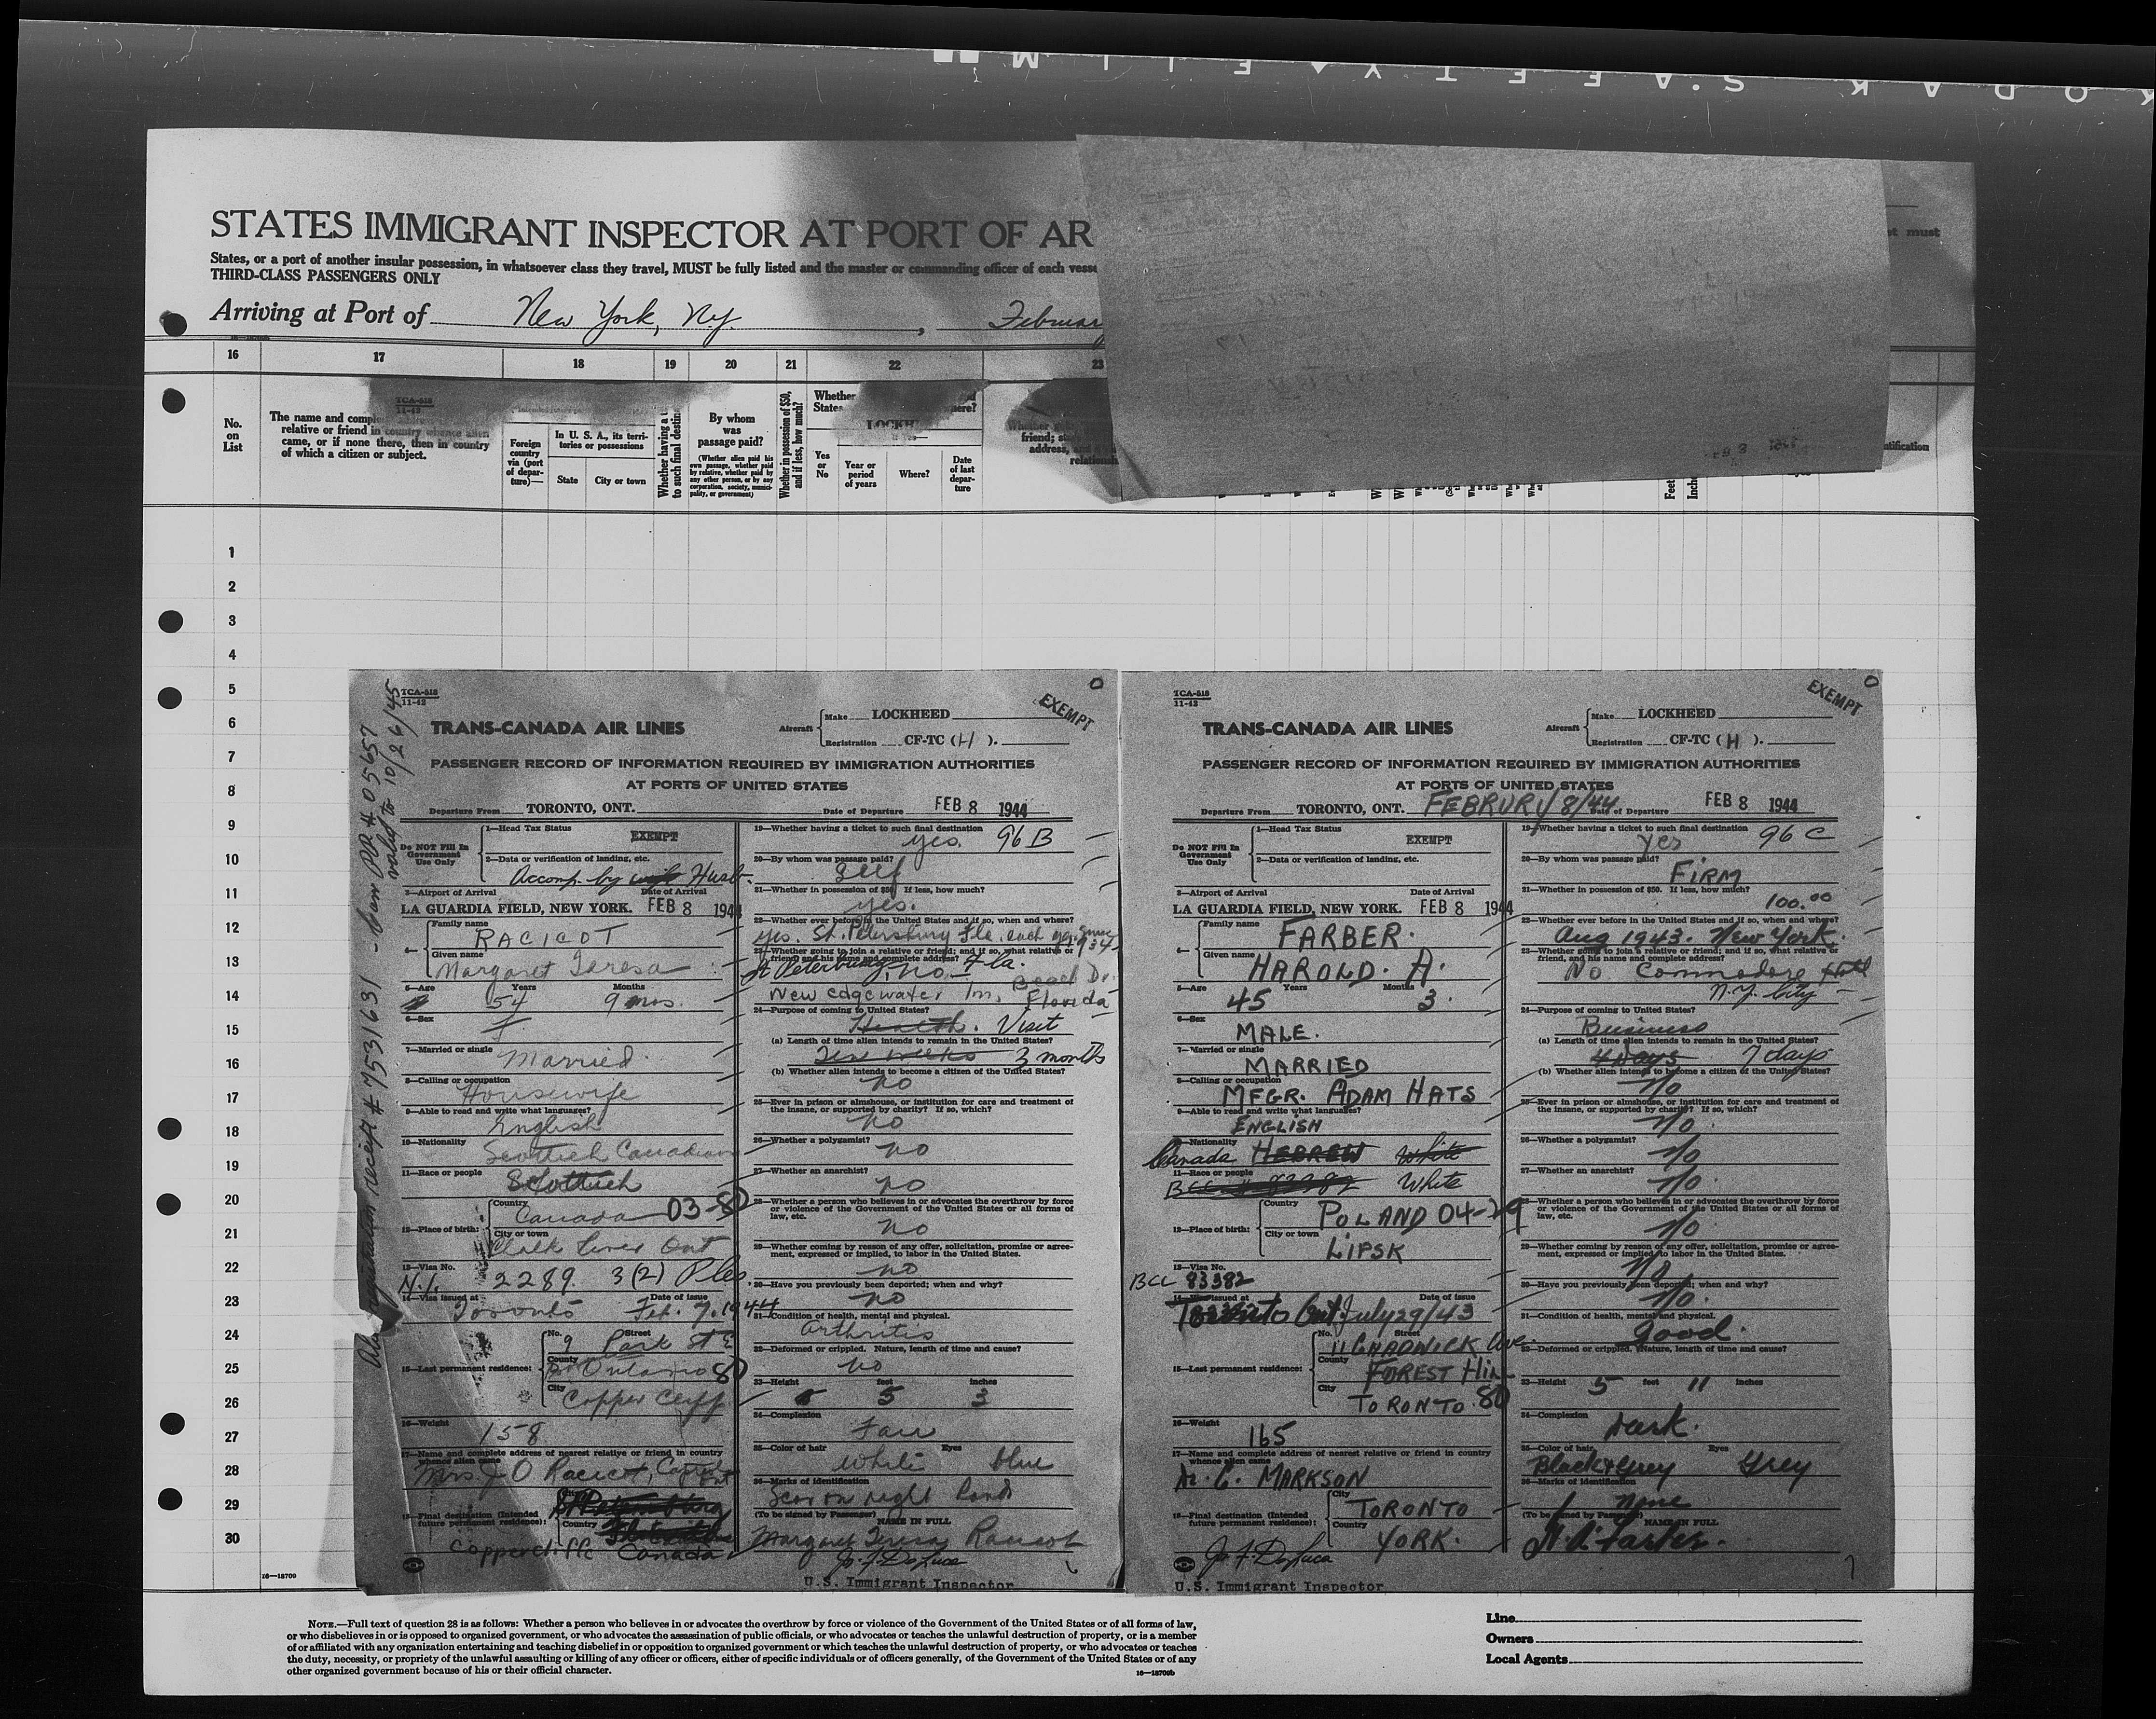 KODAK SAFETY FILM
STATES IMMIGRANT INSPECTOR AT PORT OF AR
States, or a port of another insular possession, in whatsoever class they travel, MUST be fully listed and the master or commanding officer of each vess
THIRD-CLASS PASSENGERS ONLY
Arriving at Port of New York, N.Y. , Februar
16 17 18 19 20 21 22 23
No. on List
The name and comple
relative or friend in country whence alien
came, or if none there, then in country
of which a citizen or subject.
Foreign country via (port of departure)—
In U. S. A., its territories or possessions
State
City or town
Whether having a t
to such final destina
By whom was passage paid?
(Whether alien paid his own passage, whether paid by relative, whether paid by any other person, or by any corporation, society, municipality, or government)
Whether in possession of $50, and if less, how much?
Yes or No
Year or period of years
Where?
Date of last departure
1
2
3
4
5
6
7
8
9
10
11
12
13
14
15
16
17
18
19
20
21
22
23
24
25
26
27
28
29
30
16—18709
TCA-518
11-42
EXEMPT
TRANS-CANADA AIR LINES
Aircraft Make LOCKHEED
Registration CF-TC (H).
PASSENGER RECORD OF INFORMATION REQUIRED BY IMMIGRATION AUTHORITIES
AT PORTS OF UNITED STATES
Departure From TORONTO, ONT. Date of Departure FEB 8 1944
Do NOT Fill In Government Use Only
1—Head Tax Status EXEMPT
2—Data or verification of landing, etc.
Accomp. by Husb.
3—Airport of Arrival Date of Arrival
LA GUARDIA FIELD, NEW YORK. FEB 8 1944
4— Family name RACICOT
Given name Margaret Teresa
5—Age 54 Years 9 mos. Months
6—Sex F
7—Married or single Married
8—Calling or occupation Housewife
9—Able to read and write what languages? English
10—Nationality Scottish Canadian
11—Race or people Scottish
12—Place of birth: Country Canada 03-80
City or town Chalk River Ont
13—Visa No. N.I. 2289 3(2)
14—Visa issued at Toronto Date of issue Feb. 7. 1944
15—Last permanent residence: No. 9 Street Park St E
County Ontario 80
City Copper Cliff
16—Weight 158
17—Name and complete address of nearest relative or friend in country whence alien came
Mrs J O Racicot,
18—Final destination (Intended future permanent residence): City
Country
Coppercliffe Canada
19—Whether having a ticket to such final destination yes. 96 B
20—By whom was passage paid? Self
21—Whether in possession of $50. If less, how much? yes.
22—Whether ever before in the United States and if so, when and where?
yes. St. Petersburg Fla. each yr. since 1934
23—Whether going to join a relative or friend; and if so, what relative or friend, and his name and complete address?
St Petersburg, no. Fla.
New edgewater Inn, Beach Dr. Florida
24—Purpose of coming to United States? Health. Visit
(a) Length of time alien intends to remain in the United States? 3 months
(b) Whether alien intends to become a citizen of the United States? no
25—Ever in prison or almshouse, or institution for care and treatment of the insane, or supported by charity? If so, which? no
26—Whether a polygamist? no
27—Whether an anarchist? no
28—Whether a person who believes in or advocates the overthrow by force or violence of the Government of the United States or all forms of law, etc. no
29—Whether coming by reason of any offer, solicitation, promise or agreement, expressed or implied, to labor in the United States. no
30—Have you previously been deported; when and why? no
31—Condition of health, mental and physical. Arthritis
32—Deformed or crippled. Nature, length of time and cause? no
33—Height 5 feet 3 inches
34—Complexion Fair
35—Color of hair white Eyes blue
36—Marks of identification Scar on right hand
(To be signed by Passenger) NAME IN FULL
Margaret Teresa Racicot
Jo. F. DeLuca
U.S. Immigrant Inspector
receipt # 7531631
# 05657
valid to 10/26/45
TCA-518
11-42
EXEMPT
TRANS-CANADA AIR LINES
Aircraft Make LOCKHEED
Registration CF-TC (H).
PASSENGER RECORD OF INFORMATION REQUIRED BY IMMIGRATION AUTHORITIES
AT PORTS OF UNITED STATES
Departure From TORONTO, ONT. FEBRURY 8/44 Date of Departure FEB 8 1944
Do NOT Fill In Government Use Only
1—Head Tax Status EXEMPT
2—Data or verification of landing, etc.
3—Airport of Arrival Date of Arrival
LA GUARDIA FIELD, NEW YORK. FEB 8 1944
4— Family name FARBER.
Given name HAROLD. A.
5—Age 45 Years Months 3.
6—Sex MALE.
7—Married or single MARRIED
8—Calling or occupation MFGR. ADAM HATS
9—Able to read and write what languages? ENGLISH
10—Nationality Canada HEBREW White
11—Race or people BCC # 83382 White
12—Place of birth: Country POLAND 04-29
City or town LIPSK
13—Visa No. BCC 83382
14—Visa issued at Toronto Ont Date of issue July 29/43
15—Last permanent residence: No. 11 Street CHADWICK Ave.
County FOREST Hill
City TORONTO. 80
16—Weight 165
17—Name and complete address of nearest relative or friend in country whence alien came
MARKSON
18—Final destination (Intended future permanent residence): City TORONTO
Country YORK.
19—Whether having a ticket to such final destination Yes 96 C
20—By whom was passage paid? FIRM
21—Whether in possession of $50. If less, how much? 100.00
22—Whether ever before in the United States and if so, when and where?
Aug 1943. New York.
23—Whether going to join a relative or friend; and if so, what relative or friend, and his name and complete address?
No Commodore Hotel
N.Y. City
24—Purpose of coming to United States? Business
(a) Length of time alien intends to remain in the United States? 4 days 7 days
(b) Whether alien intends to become a citizen of the United States? No
25—Ever in prison or almshouse, or institution for care and treatment of the insane, or supported by charity? If so, which? No.
26—Whether a polygamist? No
27—Whether an anarchist? No.
28—Whether a person who believes in or advocates the overthrow by force or violence of the Government of the United States or all forms of law, etc. No.
29—Whether coming by reason of any offer, solicitation, promise or agreement, expressed or implied, to labor in the United States. No
30—Have you previously been deported; when and why? No.
31—Condition of health, mental and physical. Good.
32—Deformed or crippled. Nature, length of time and cause?
33—Height 5 feet 11 inches
34—Complexion Dark.
35—Color of hair Black & Grey Eyes Grey
36—Marks of identification none
(To be signed by Passenger) NAME IN FULL
H. A. Farber.
Jo. F. DeLuca
U.S. Immigrant Inspector
NOTE.—Full text of question 28 is as follows: Whether a person who believes in or advocates the overthrow by force or violence of the Government of the United States or of all forms of law,
or who disbelieves in or is opposed to organized government, or who advocates the assassination of public officials, or who advocates or teaches the unlawful destruction of property, or is a member
of or affiliated with any organization entertaining and teaching disbelief in or opposition to organized government or which teaches the unlawful destruction of property, or who advocates or teaches
the duty, necessity, or propriety of the unlawful assaulting or killing of any officer or officers, either of specific individuals or of officers generally, of the Government of the United States or of any
other organized government because of his or their official character.
16—18709b
Line
Owners
Local Agents